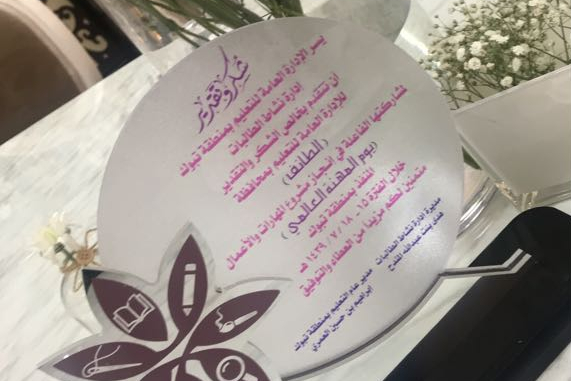 شكر وتقدير
يسر الإدارة العامة للتعليم بمنطقة تبوك
إدارة نشاط الطالبات
ان تتقدم بخالص الشكر والتقدير
للإدارة العامة للتعليم بمحافظة
(الطائف)
لمشاركتها الفاعلة في انجاز مشروع المهارات والأعمال
(يوم المهنة العالمي)
المنفذ بمنطقة تبوك
خلال الفترة ١٥ - ١٨ / ٧ / ١٤٣٩ هـ
متمنين لكم مزيدا من العطاء والتوفيق
مديرة إدارة نشاط الطالبات
هدى بنت عبدالله
مدير عام التعليم بمنطقة تبوك
إبراهيم بن حسين العمري